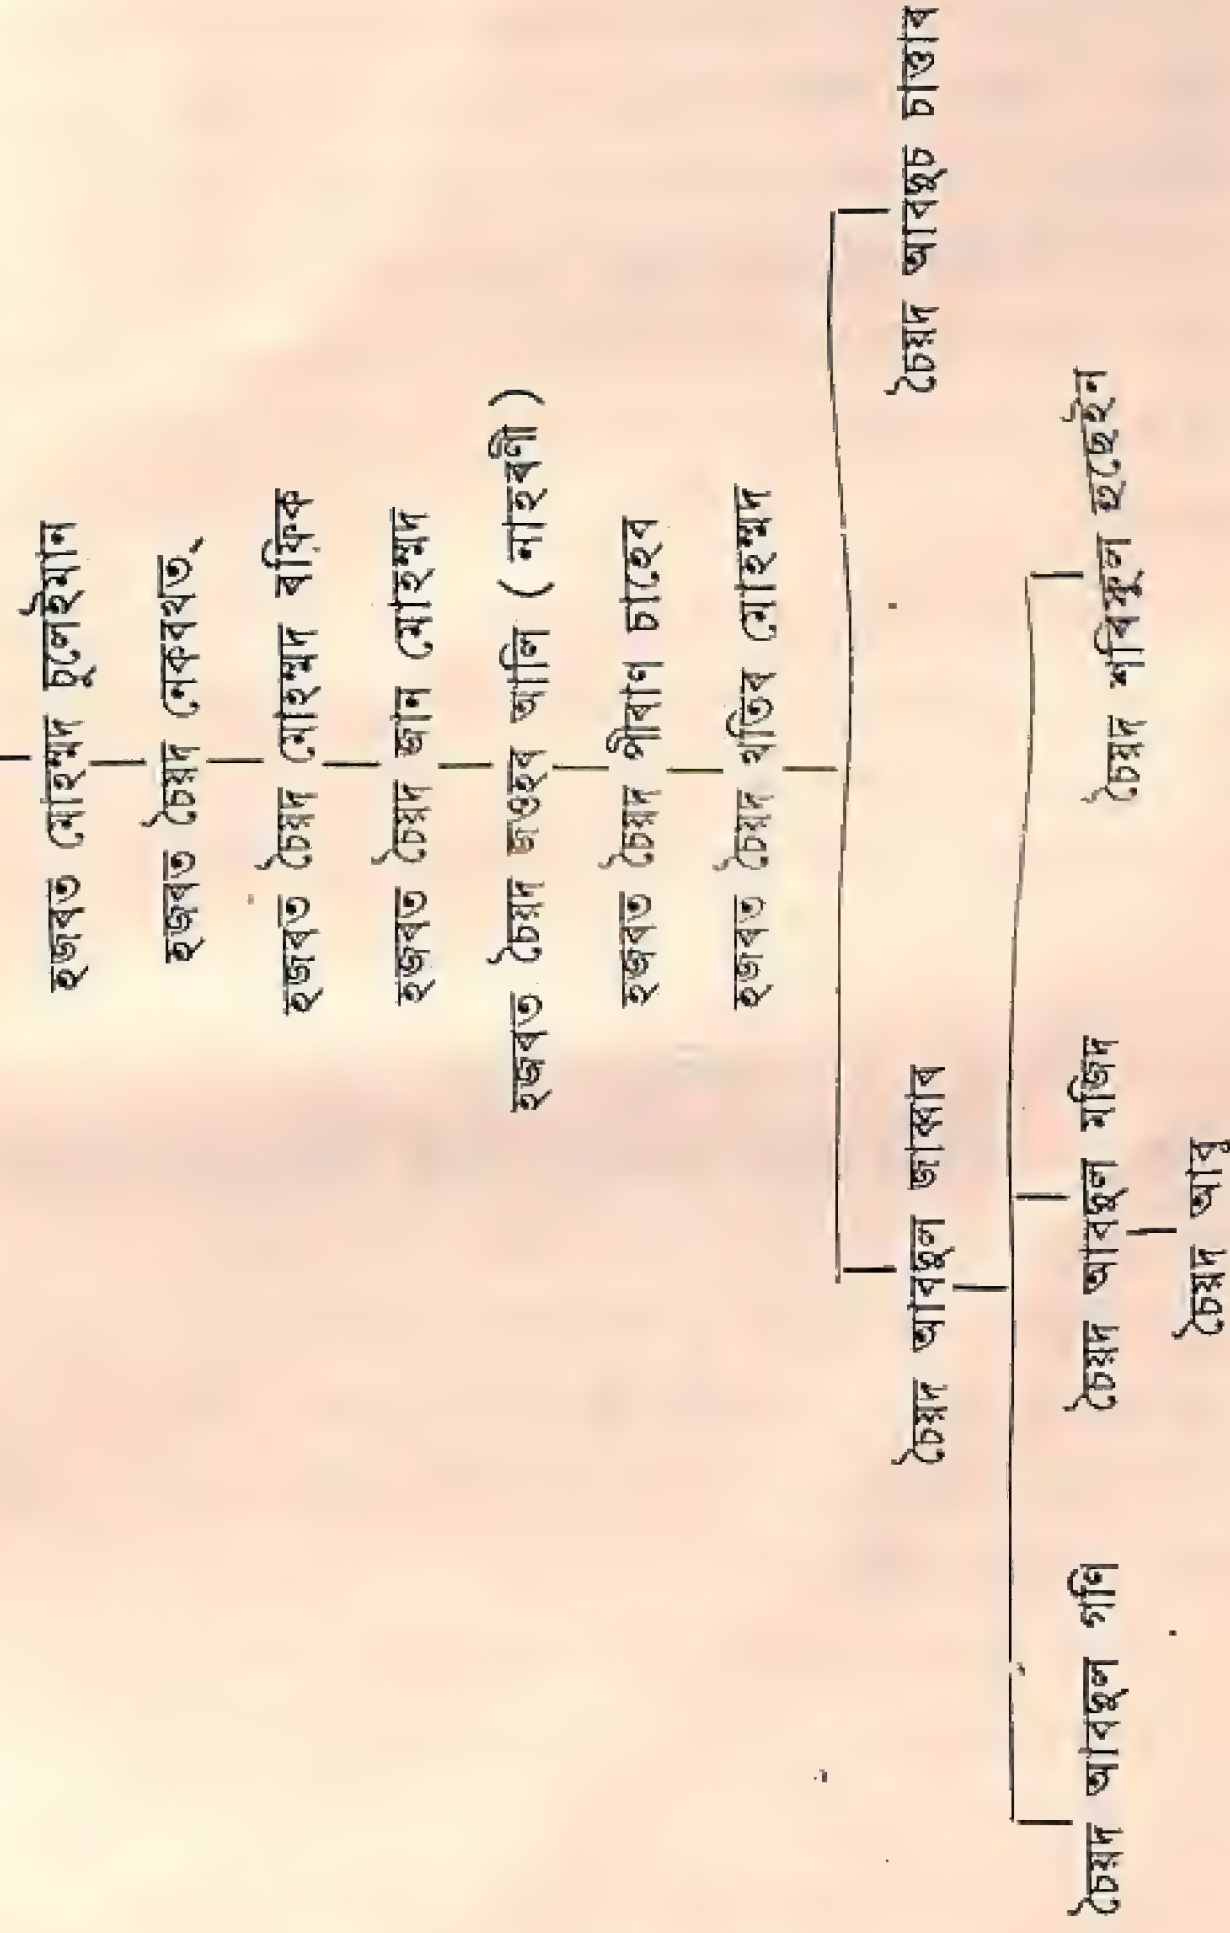 হজৰত মোহম্মদ চুলেইমান
হজৰত চৈয়দ নেকবখত্
হজৰত চৈয়দ মোহম্মদ ৰফিক
হজৰত চৈয়দ জান মোহম্মদ
হজৰত চৈয়দ জওহৰ আলি ( নাহৰণী )
হজৰত চৈয়দ পীৰাণ চাহেব
হজৰত চৈয়দ মতিৰ মোহম্মদ
চৈয়দ আবদুল জাব্বাৰ চৈয়দ আবদুচ চাত্তাৰ
চৈয়দ আবদুল গণি চৈয়দ আবদুল মজিদ চৈয়দ শৰিফুল হুছেইন
চৈয়দ আবু